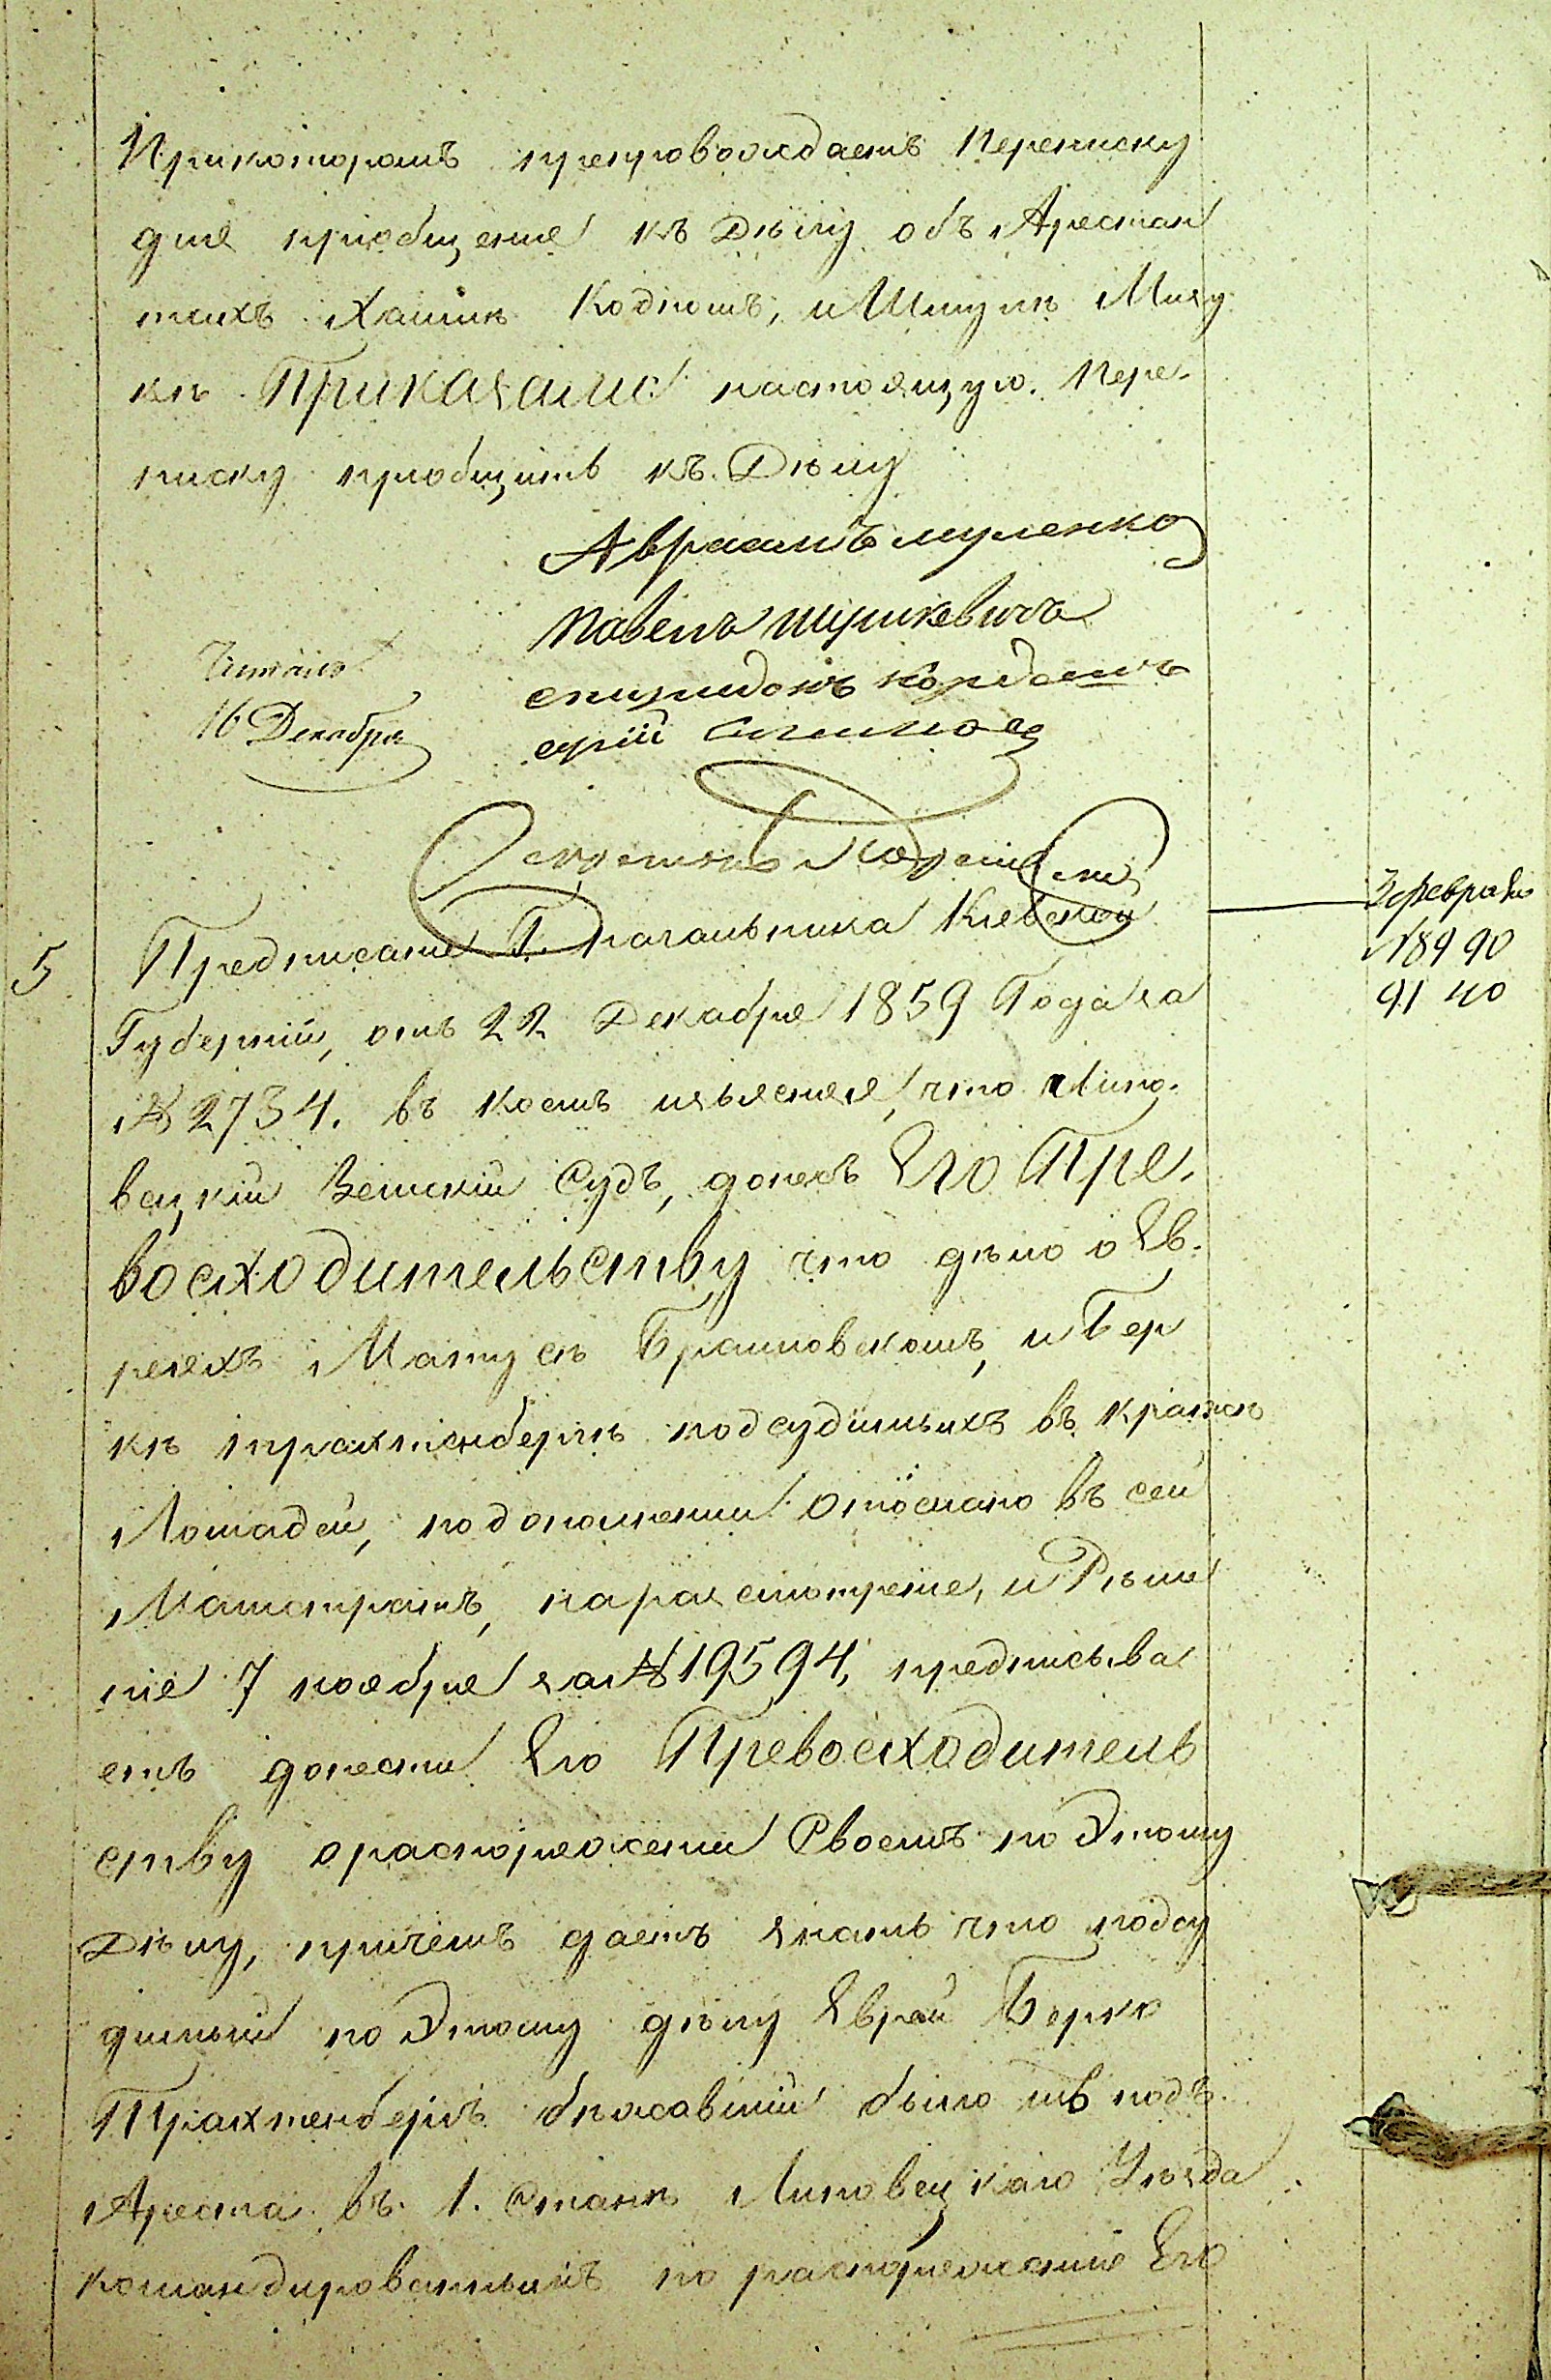 Прикоторомъ препровождаетъ переписку
для приобщенія къ Дѣлу объ Арестан
тахъ Хаимѣ Кодномъ, и Шмулѣ
кѣ Приказали: настоящую пере-
писку приобщить къ Дѣлу
Авраамъ
Павелъ
спиридонъ
Читано
16 Декабря
Секретарь
5 Предписаніе Г. Начальника Кіевской
3 февраля
Губерніи, отъ 22 Декабря 1859 Года за
№ 89 90
91 40
№ 2734. въ коемъ изъясняя, что Липо-
вецкій Земскій Судъ, донесъ Его Пре-
восходительству что дѣло о Ев-
реяхъ Матусѣ Браиловскомъ, и Бер
кѣ трахтенбергѣ подсудимыхъ въ кражѣ
Лошадей, подополненіи отослано въ сей
Магистратъ, наразсмотреніе, и Рѣше
ніе 7 ноября за № 19594, предписыва
етъ донести Его Превосходитель
ству ораспоряженіи Своемъ по Этому
Дѣлу, причемъ даетъ знать что подсу
димый по Этому дѣлу Еврей Берко
Трахтенбергъ бѣжавшій было изъ подъ
Ареста въ 1. Станѣ Липовецкаго Уѣзда
командированнымъ по распоряженію Его